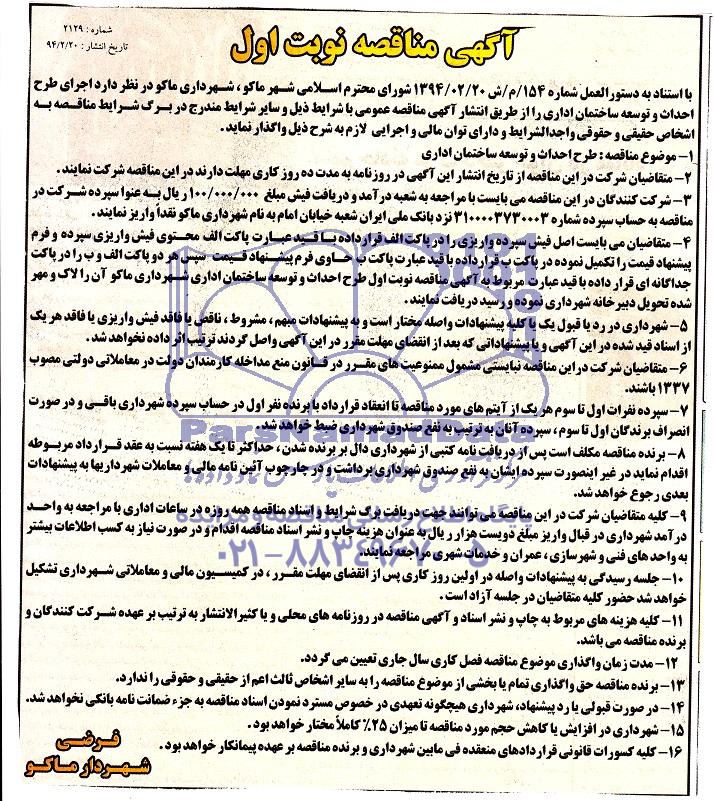 شماره : ۲۱۲۹
تاریخ انتشار : ۹۴/۲/۲۰
آگهی مناقصه نوبت اول
با استناد به دستورالعمل شماره ۱۵۴/م/ش ۱۳۹۴/۰۲/۲۰ شورای محترم اسلامی شهر ماکو ، شهرداری ماکو در نظر دارد اجرای طرح
احداث و توسعه ساختمان اداری را از طریق انتشار آگهی مناقصه عمومی با شرایط ذیل و سایر شرایط مندرج در برگ شرایط مناقصه به
اشخاص حقیقی و حقوقی واجدالشرایط و دارای توان مالی و اجرایی لازم به شرح ذیل واگذار نماید.
۱- موضوع مناقصه : طرح احداث و توسعه ساختمان اداری
۲- متقاضیان شرکت در این مناقصه از تاریخ انتشار این آگهی در روزنامه به مدت ده روز کاری مهلت دارند در این مناقصه شرکت نمایند.
۳- شرکت کنندگان در این مناقصه می بایست با مراجعه به شعبه درآمد و دریافت فیش مبلغ ۱۰۰/۰۰۰/۰۰۰ ریال به عنوا سپرده شرکت در
مناقصه به حساب سپرده شماره ۳۱۰۰۰۰۳۷۳۰۰۰۳ نزد بانک ملی ایران شعبه خیابان امام به نام شهرداری ماکو نقداً واریز نمایند.
۴- متقاضیان می بایست اصل فیش سپرده واریزی را در پاکت الف قرارداده با قید عبارت پاکت الف محتوی فیش واریزی سپرده و فرم
پیشنهاد قیمت را تکمیل نموده در پاکت ب قرارداده با قید عبارت پاکت ب حاوی فرم پیشنهاد قیمت سپس هر دو پاکت الف و ب را در پاکت
جداگانه ای قرار داده با قید عبارت مربوط به آگهی مناقصه نوبت اول طرح احداث و توسعه ساختمان اداری شهرداری ماکو آن را لاک و مهر
شده تحویل دبیرخانه شهرداری نموده و رسید دریافت نمایند.
۵- شهرداری در رد یا قبول یک یا کلیه پیشنهادات واصله مختار است و به پیشنهادات مبهم ، مشروط ، ناقص یا فاقد فیش واریزی یا فاقد هر یک
از اسناد قید شده در این آگهی و یا پیشنهاداتی که بعد از انقضای مهلت مقرر در این آگهی واصل گردند ترتیب اثر داده نخواهد شد.
۶- متقاضیان شرکت در این مناقصه نبایستی مشمول ممنوعیت های مقرر در قانون منع مداخله کارمندان دولت در معاملاتی دولتی مصوب
۱۳۳۷ باشند.
۷- سپرده نفرات اول تا سوم هر یک از آیتم های مورد مناقصه تا انعقاد قرارداد با برنده نفر اول در حساب سپرده شهرداری باقی و در صورت
انصراف برندگان اول تا سوم ، سپرده آنان به ترتیب به نفع صندوق شهرداری ضبط خواهد شد.
۸- برنده مناقصه مکلف است پس از دریافت نامه کتبی از شهرداری دال بر برنده شدن ، حداکثر تا یک هفته نسبت به عقد قرارداد مربوطه
اقدام نماید در غیر اینصورت سپرده ایشان به نفع صندوق شهرداری برداشت و در چارچوب آئین نامه مالی و معاملات شهرداریها به پیشنهادات
بعدی رجوع خواهد شد.
۹- کلیه متقاضیان شرکت در این مناقصه می توانند جهت دریافت برگ شرایط و اسناد مناقصه همه روزه در ساعات اداری با مراجعه به واحد
درآمد شهرداری در قبال واریز مبلغ دویست هزار ریال به عنوان هزینه چاپ و نشر اسناد مناقصه اقدام و در صورت نیاز به کسب اطلاعات بیشتر
به واحد های فنی و شهرسازی ، عمران و خدمات شهری مراجعه نمایند.
۱۰- جلسه رسیدگی به پیشنهادات واصله در اولین روز کاری پس از انقضای مهلت مقرر ، در کمیسیون مالی و معاملاتی شهرداری تشکیل
خواهد شد حضور کلیه متقاضیان در جلسه آزاد است.
۱۱- کلیه هزینه های مربوط به چاپ و نشر اسناد و آگهی مناقصه در روزنامه های محلی و یا کثیرالانتشار به ترتیب بر عهده شرکت کنندگان و
برنده مناقصه می باشد.
۱۲- مدت زمان واگذاری موضوع مناقصه فصل کاری سال جاری تعیین می گردد.
۱۳- برنده مناقصه حق واگذاری تمام یا بخشی از موضوع مناقصه را به سایر اشخاص ثالث اعم از حقیقی و حقوقی را ندارد.
۱۴- در صورت قبولی یا رد پیشنهاد، شهرداری هیچگونه تعهدی در خصوص مسترد نمودن اسناد مناقصه به جزء ضمانت نامه بانکی نخواهد شد.
۱۵- شهرداری در افزایش یا کاهش حجم مورد مناقصه تا میزان ۲۵٪ کاملاً مختار خواهد بود.
۱۶- کلیه کسورات قانونی قراردادهای منعقده فی مابین شهرداری و برنده مناقصه بر عهده پیمانکار خواهد بود.
فرضی
شهردار ماکو
ParsNamadData
۰۲۱-۸۸۳۴۹۶۷۰-۵